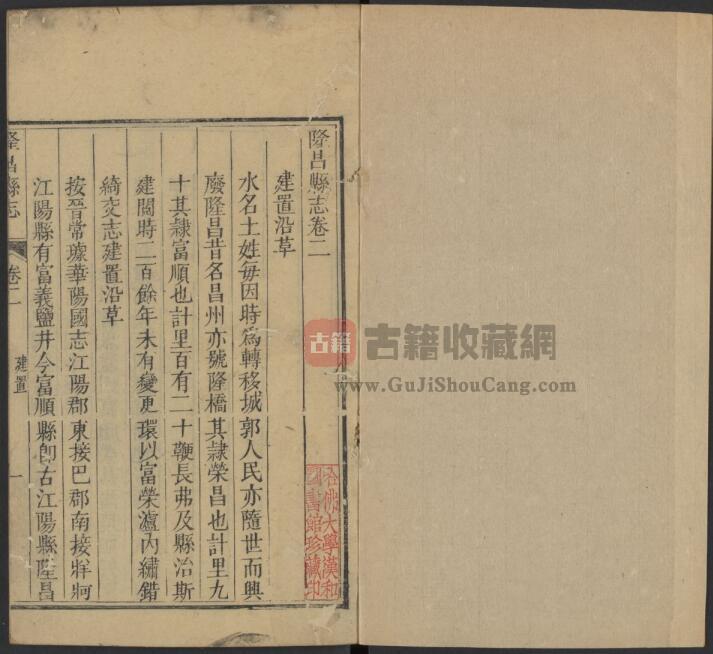 隆昌縣志卷二
建置沿革
水名土姓每因時爲轉移城郭人民亦隨世而興
廢隆昌昔名昌州亦號隆橋其隷榮昌也計里九
十其隷富順也計里百有二十鞭長弗及縣治斯
建閱時二百餘年未有變更環以富榮瀘内繡錯
綺交志建置沿革
按晉常璩華陽國志江陽郡東接巴郡南接牂牁
江陽縣有富義鹽井今富順縣卽古江陽縣隆昌
隆昌縣志
卷二
建置
一
古籍
古籍收藏網
www.GuJiShouCang.com
哈佛大學漢和
圖書館珍藏印